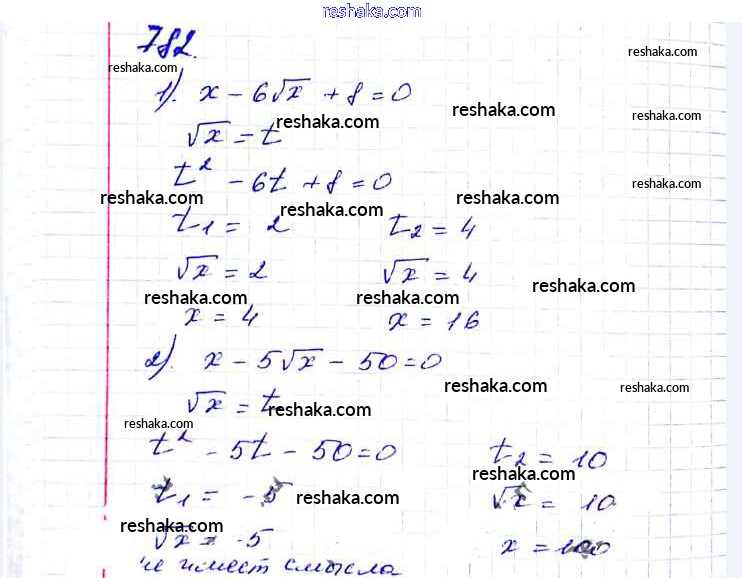 reshaka.com
782.
reshaka.com
reshaka.com
1). x - 6√x + 8 = 0
reshaka.com
√x = t reshaka.com
reshaka.com
t² - 6t + 8 = 0
reshaka.com
reshaka.com reshaka.com reshaka.com
t₁ = 2 t₂ = 4
√x = 2 √x = 4
reshaka.com reshaka.com reshaka.com
x = 4 x = 16
2). x - 5√x - 50 = 0
reshaka.com reshaka.com
√x = t reshaka.com
reshaka.com
t² - 5t - 50 = 0 t₂ = 10
reshaka.com
t₁ = -5 reshaka.com √x = 10
reshaka.com
√x = -5 x = 100
не имеет смысла